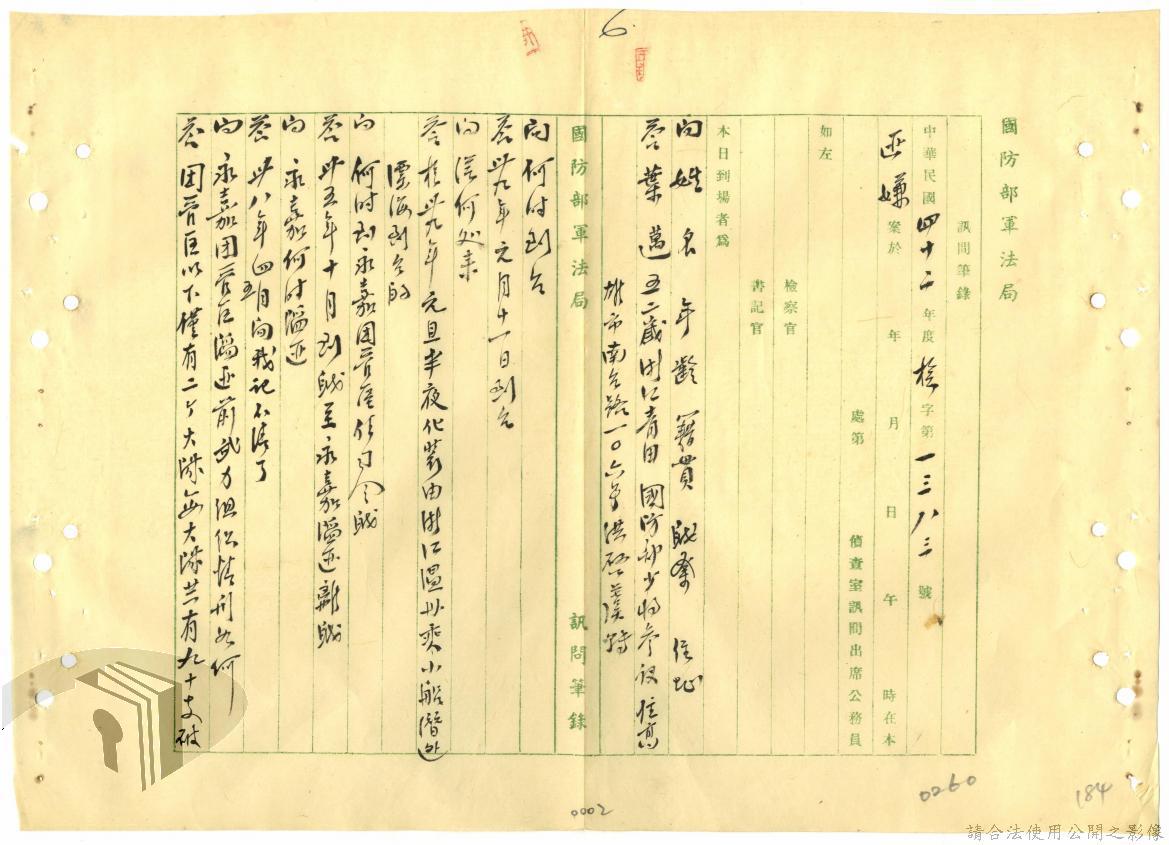 6
國防部軍法局
訊問筆錄
中華民國四十二年度檢字第一三八三號
匪嫌案於 年 月 日 午 時在本
處第 偵查室訊問出席公務員
如左
檢察官
書記官
本日到場者為
問 姓名年齡籍貫職業住址
答 葉邁 五二歲 浙江青田 國防部少將參議 住高
雄市南台路一〇六號
問 何時到台
答 卅九年元月十一日到台
國防部軍法局 訊問筆錄
問 從何处來
答 於卅九年元旦半夜化裝由浙江溫州乘小船潛
海到台的
問 何時到永嘉團管區任司令職
答 卅五年十月到職至永嘉淪匪離職
問 永嘉何時淪匪
答 卅八年四五月間我記不清了
問 永嘉團管區淪匪前武力組織情形如何
答 團管區以下僅有二个大隊每大隊共有九十支破
0002
0260
184
請合法使用公開之影像